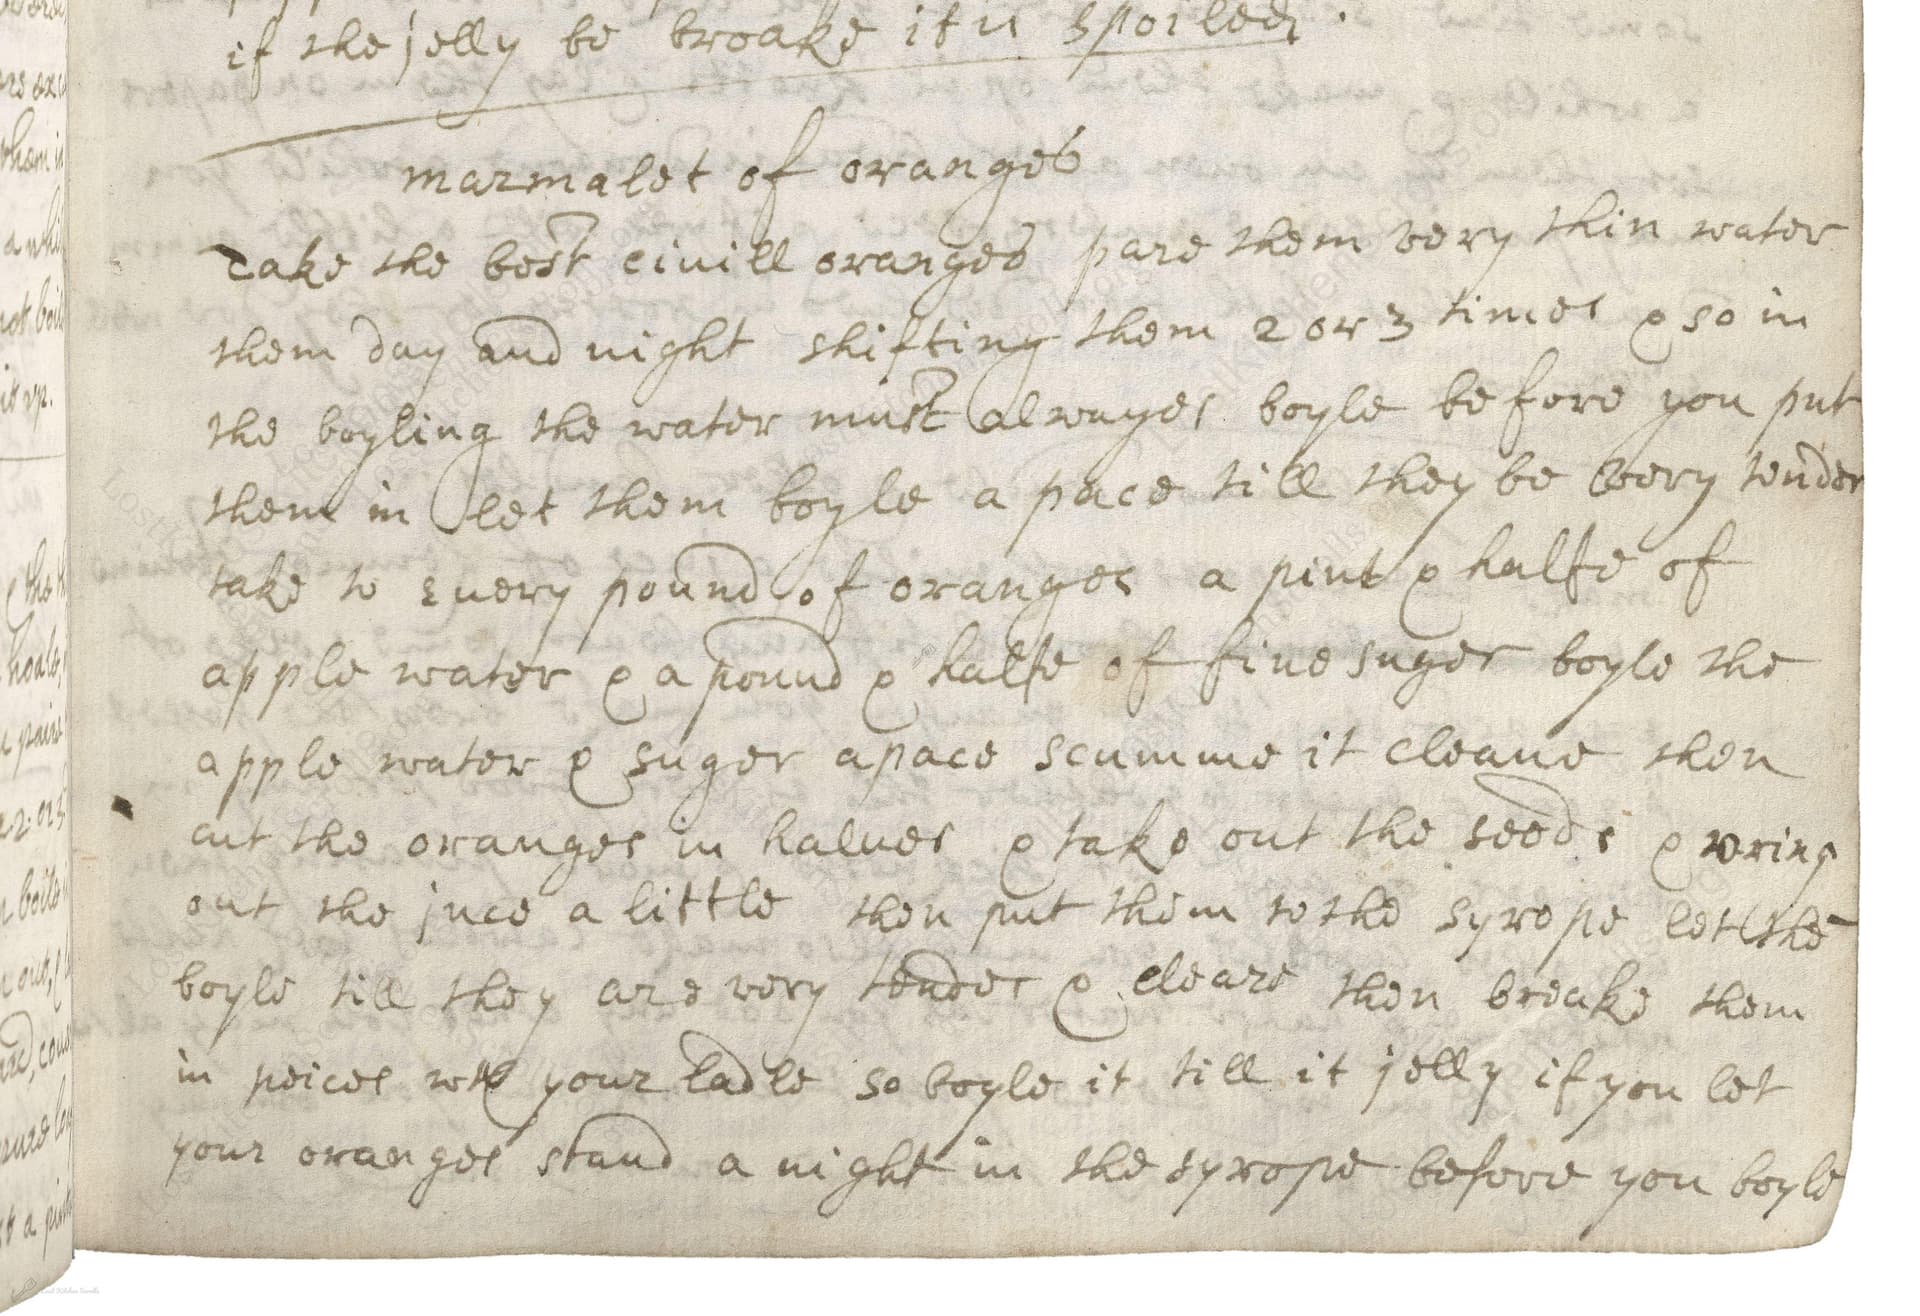 if the jelly be broake it is spoiled.
marmalet of oranges
Take the best civill oranges pare them very thin water
them day and night shifting them 2 or 3 times & so in
the boyling the water must alwayes boyle before you put
them in let them boyle a pace till they be very tender
take to every pound of oranges a pint & halfe of
apple water & a pound & halfe of fine suger boyle the
apple water & suger apace scumme it cleane then
cut the oranges in halues & take out the seeds & wring
out the juce a little then put them to the syrope let the
boyle till they are very tender & cleare then breake them
in peices wth your ladle so boyle it till it jelly if you let
your oranges stand a night in the syrope before you boyle